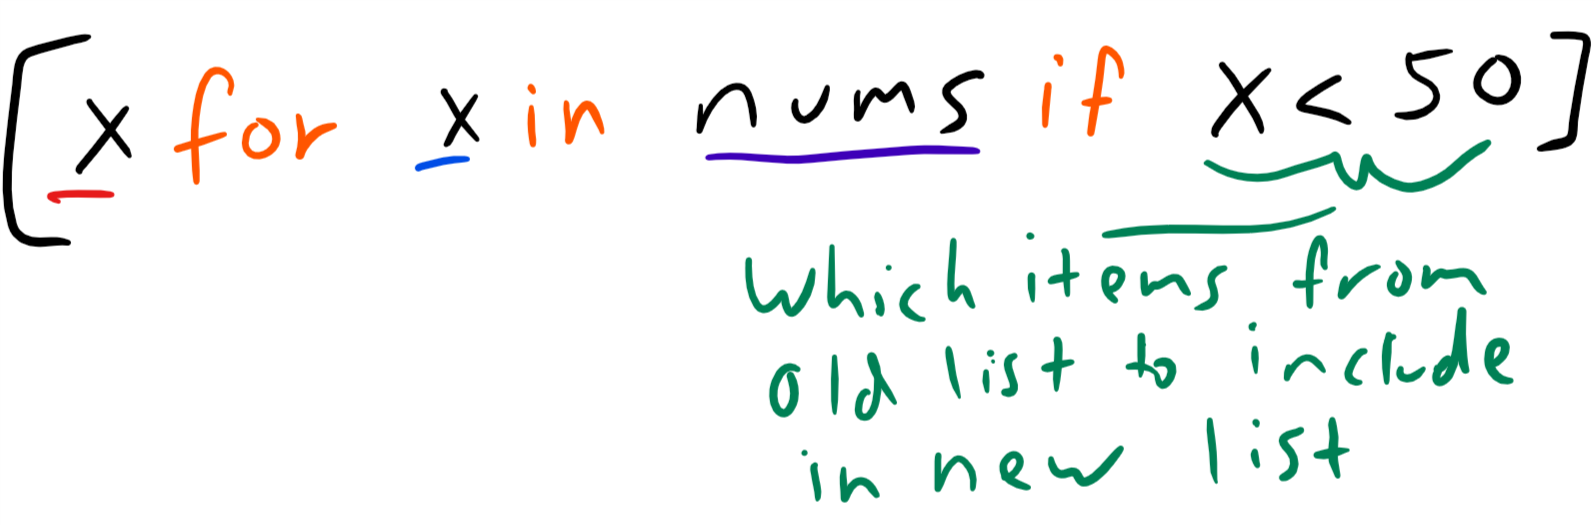 [x for x in nums if x < 50]
which items from
old list to include
in new list